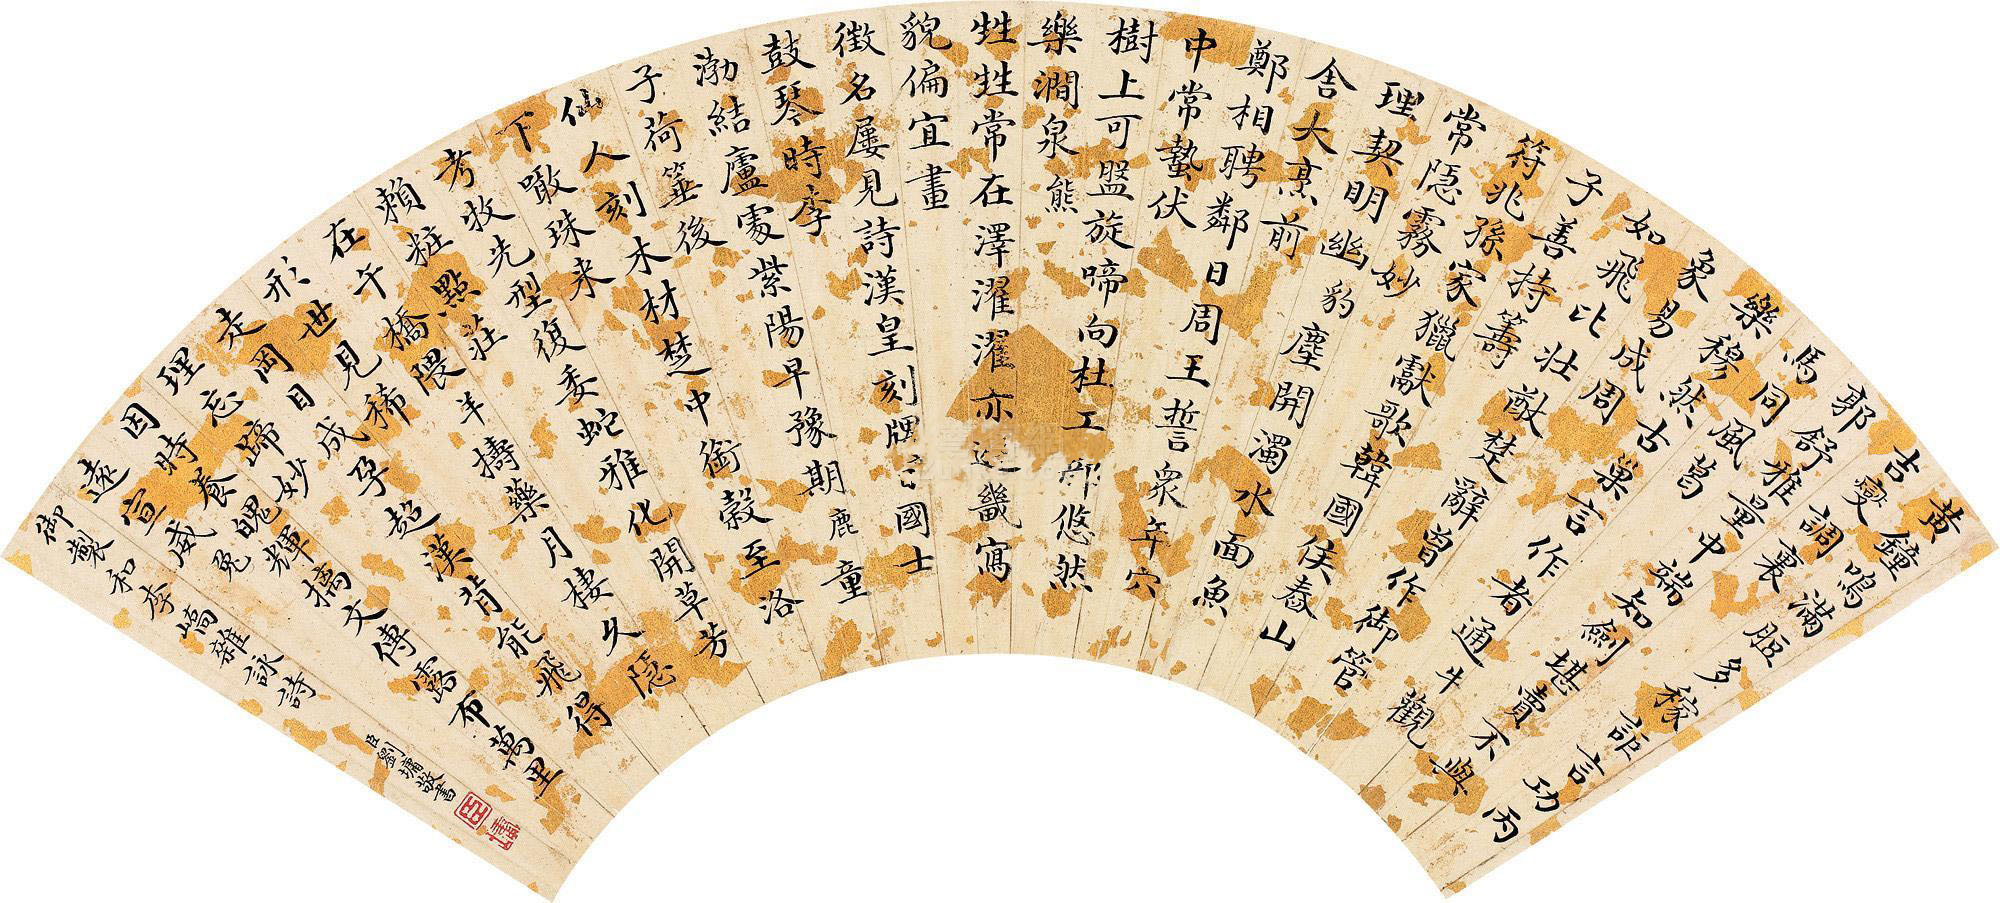 黃鐘鳴滿脰多稼詎言功丙
吉燮調裏
郭舒雅量中端知劍堪賣不與
馬同風葛
樂穆然古巢言作者通牛觀
象易成周
如飛比壯猷楚辭曾作御管
子善持籌
符兆孫家獵獻歌韓國侯春山
常隱霧妙
理契明幽豹塵開濁水面魚
舍大烹前
鄭相聘鄰日周王誓衆年穴
中常蟄伏
樹上可盤旋啼向杜工部悠然
樂澗泉熊
甡甡常在澤濯濯亦近畿寫
貌偏宜畫
徵名屢見詩漢皇刻牌國士
鼓琴時李
渤結廬處紫陽早豫期鹿童
子荷箠後
仙人刻木材楚中銜穀至洛
下噉珠來
考牧先型復委蛇雅化開草芳
賴粧點莊
在午橋隈羊擣藥月棲久隱
形世見稀
走罔目成孕超漢肯能飛得
理忘蹄妙
因時養魄輝摛文傳露布萬里
遠宣威兔
御製和李嶠雜詠詩
臣劉墉敬書
臣
墉